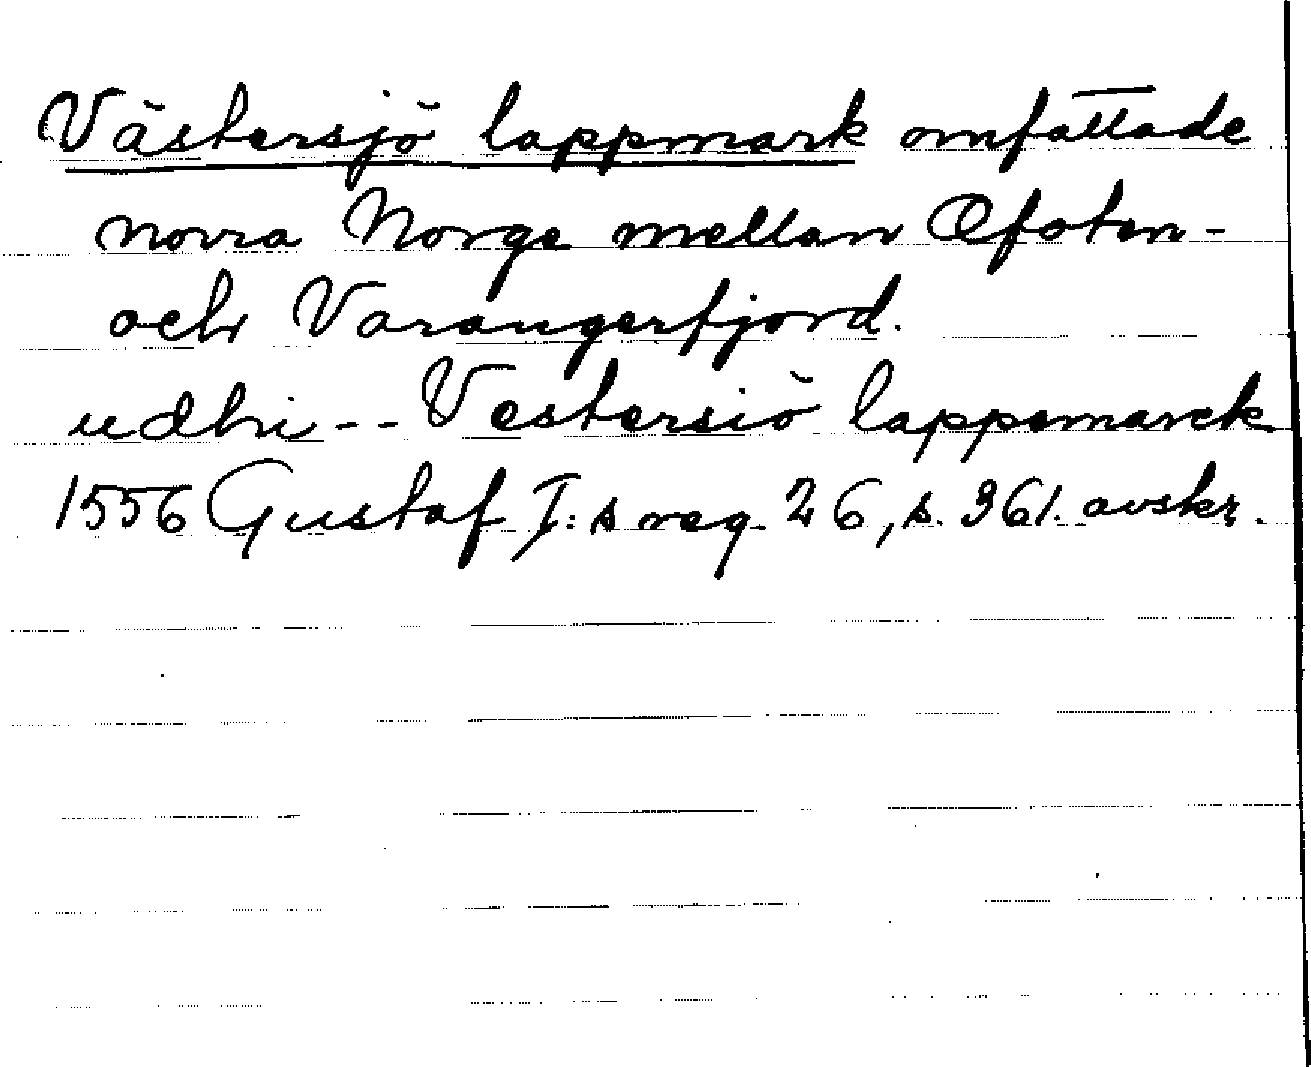 Västersjö lappmark omfattade
norra Norge mellan Ofoten-
och Varangerfjord.
udhi -- Vestersiö lappemarck
1556 Gustaf I:s reg 26, s. 361. avskr.